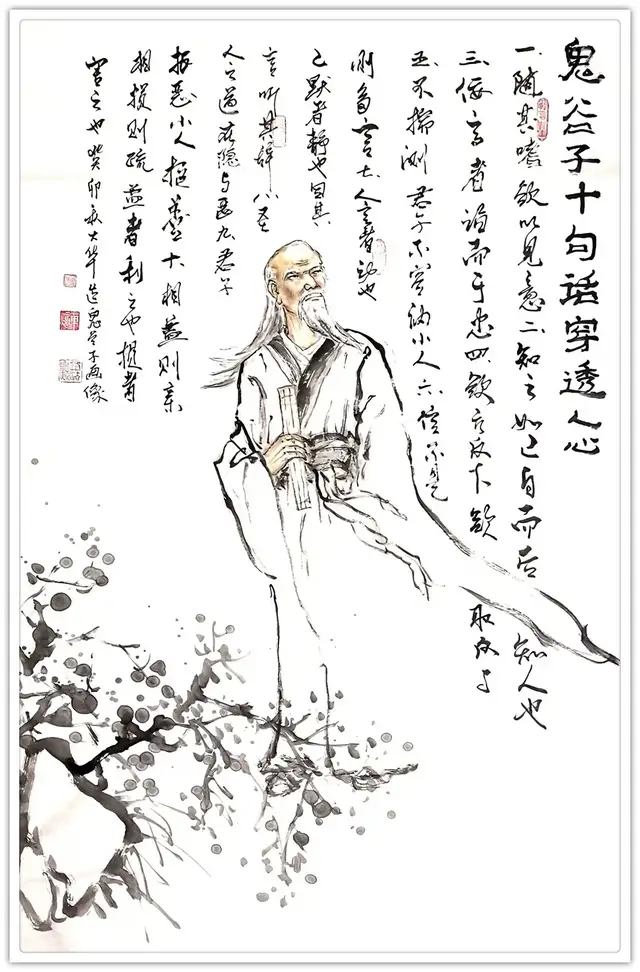 鬼谷子十句话穿透人心
一随其嗜欲以见意二知之如己自而后知人也
三佞言者谄而于忠四欲高反下欲取反与
五不揣测君子不容纳小人六信不足
则多言七人言者动也
己默者静也因其
言听其辞八圣
人之道在隐与匿九君子
恶小人善十相益则亲
相损则疏益者利之也损者
害之也癸卯秋大华造鬼谷子画像